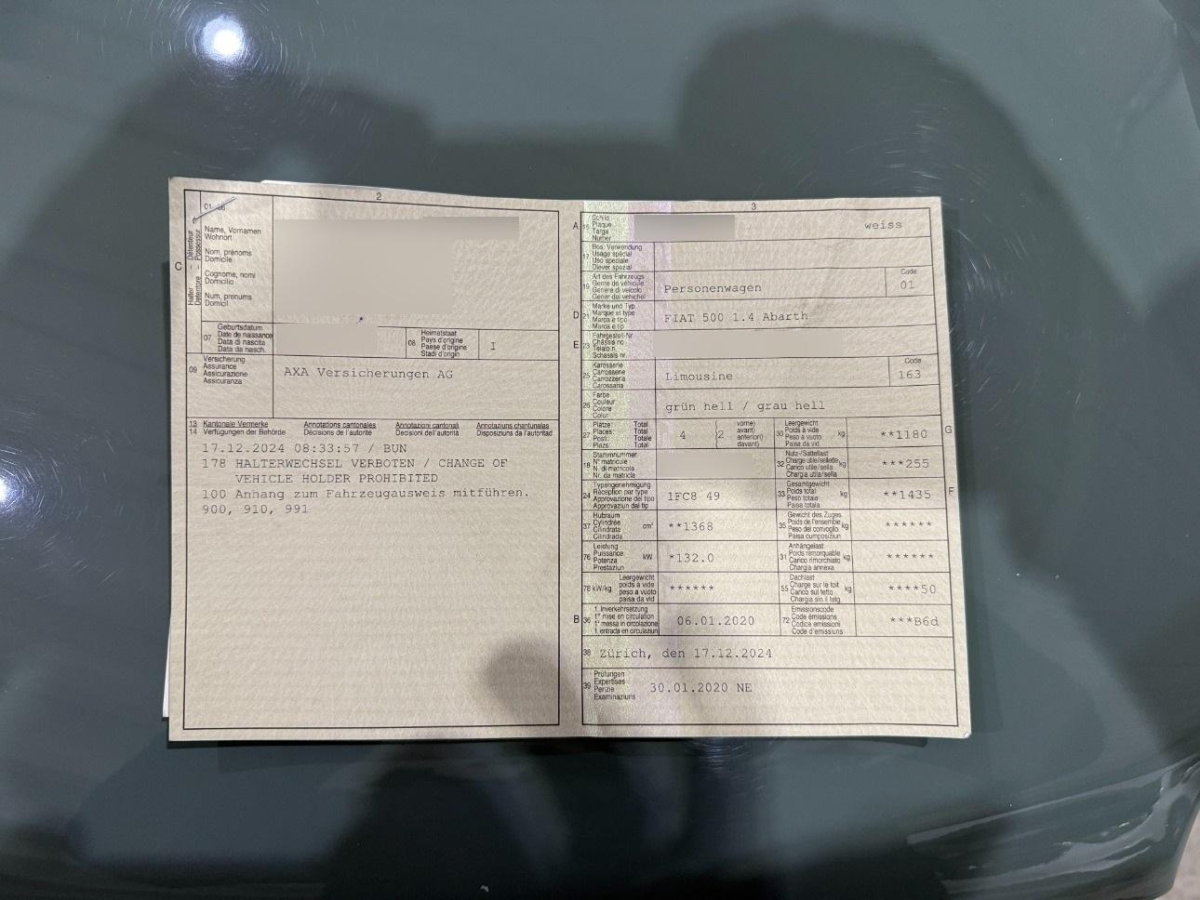 2
01-06
Name, Vornamen
Wohnort
Nom, prénoms
Domicile
Cognome, nomi
Domicilio
Num, prenums
Domicil
C
07
Geburtsdatum
Date de naissance
Data di nascita
Data da nasch.
08
Heimatstaat
Pays d'origine
Paese d'origine
Stadi d'origin
I
09
Versicherung
Assurance
Assicurazione
Assicuranza
AXA Versicherungen AG
13
14
Kantonale Vermerke
Verfügungen der Behörde
Annotations cantonales
Décisions de l'autorité
Annotazioni cantonali
Decisioni dell'autorità
Annotaziuns chantunalas
Disposiziuns da l'autoritad
17.12.2024 08:33:57 / BUN
178 HALTERWECHSEL VERBOTEN / CHANGE OF
VEHICLE HOLDER PROHIBITED
100 Anhang zum Fahrzeugausweis mitführen.
900, 910, 991
3
A
15
Schild
Plaque
Targa
Numer
weiss
17
Bes. Verwendung
Usage spécial
Uso speciale
Diever spezial
19
Art des Fahrzeugs
Genre de véhicule
Genere di veicolo
Gener dal vehichel
Personenwagen
Code
01
D
21
Marke und Typ
Marque et type
Marca e tipo
Marca e tip
FIAT 500 1.4 Abarth
E
23
Fahrgestell-Nr.
Châssis no
Telaio n.
Schassis nr.
25
Karosserie
Carrosserie
Carrozzeria
Carossaria
Limousine
Code
163
26
Farbe
Couleur
Colore
Colur
grün hell / grau hell
27
Plätze: Total
Places: Total
Posti: Totale
Plazs: Total
4
2
vorne)
avant)
anteriori)
davant)
30
Leergewicht
Poids à vide
Peso a vuoto
Paisa da vid
kg
**1180
G
18
Stammnummer
N° matricule
N. di matricola
Nr. da matricla
32
Nutz-/Sattellast
Charge utile/sellette
Carico utile/sella
Chargia utila/sella
kg
***255
24
Typengenehmigung
Réception par type
Approvazione del tipo
Approvaziun dal tip
1FC8 49
33
Gesamtgewicht
Poids total
Peso totale
Paisa totala
kg
**1435
F
37
Hubraum
Cylindrée
Cilindrata
Cilindrada
cm³
**1368
35
Gewicht des Zuges
Poids de l'ensemble
Peso del convoglio
Paisa cumposiziun
kg
******
76
Leistung
Puissance
Potenza
Prestaziun
kW
*132.0
31
Anhängelast
Poids remorquable
Carico rimorchiato
Chargia annexa
kg
******
78
kW/kg
Leergewicht
poids à vide
peso a vuoto
paisa da vid
******
55
Dachlast
Charge sur le toit
Carico sul tetto
Chargia sin il tetg
kg
****50
B
36
1. Inverkehrsetzung
1re mise en circulation
1a messa in circolazione
1. entrada en circulaziun
06.01.2020
72
Emissionscode
Code émissions
Codice emissioni
Code d'emissiuns
***B6d
38
Zürich, den 17.12.2024
39
Prüfungen
Expertises
Perizie
Examinaziuns
30.01.2020 NE